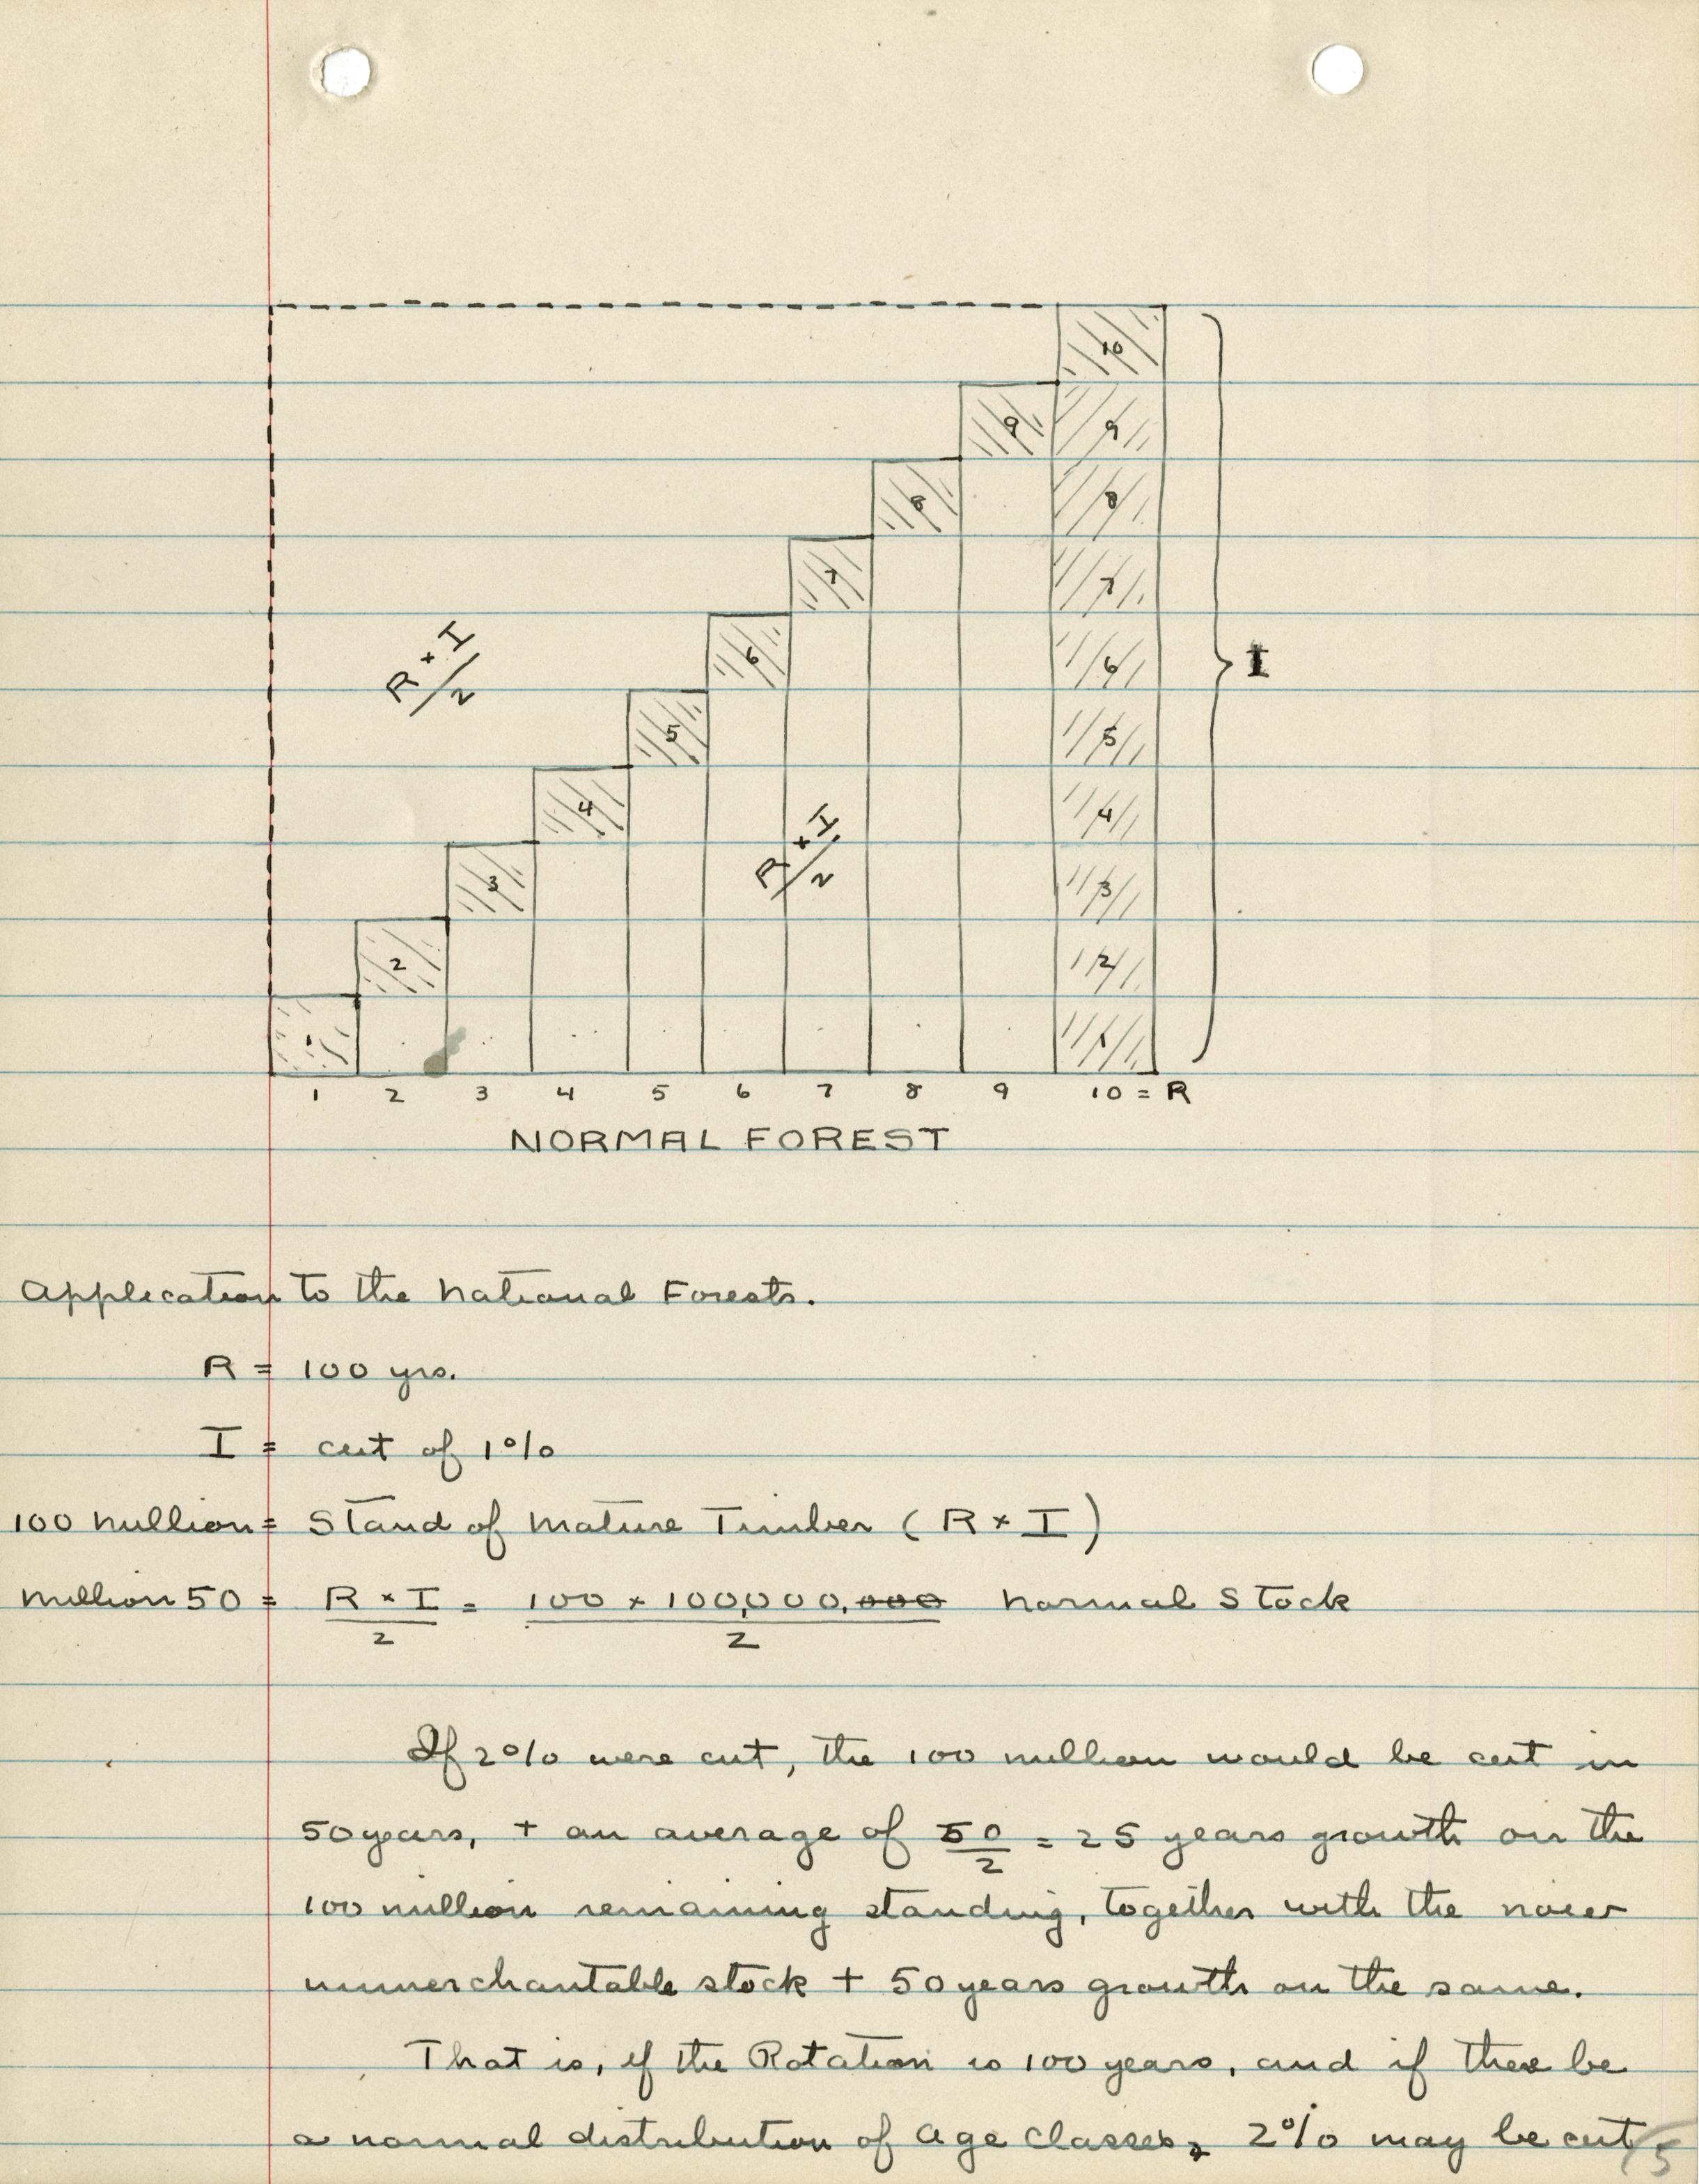 10
9 9
8 8
7 7
R × I / 2
6 6
I
5 5
4 4
R × I / 2
3 3
2 2
1 1
1 2 3 4 5 6 7 8 9 10 = R
NORMAL FOREST
Application to the National Forests.
R = 100 yrs.
I = cut of 1%
100 million = Stand of Mature Timber (R × I)
million 50 = R × I / 2 = 100 × 100,000,000 / 2 Normal Stock
If 2% were cut, the 100 million would be cut in
50 years, + an average of 50/2 = 25 years growth on the
100 million remaining standing, together with the now
unmerchantable stock + 50 years growth on the same.
That is, if the Rotation is 100 years, and if there be
a normal distribution of Age Classes, 2% may be cut
5